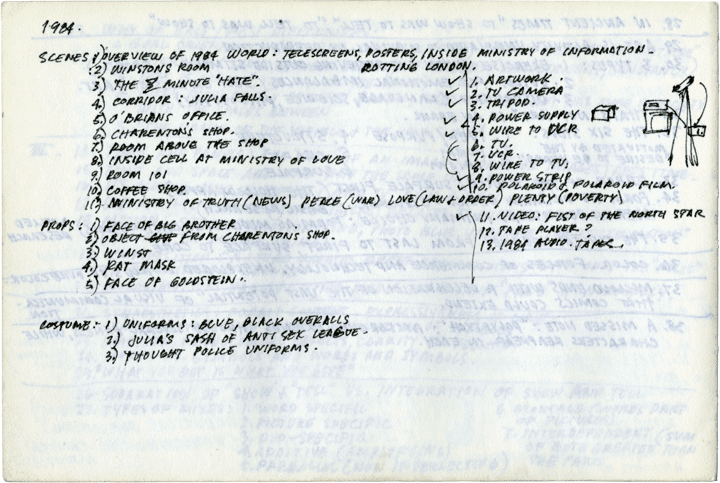 1984.
SCENES: 1) OVERVIEW OF 1984 WORLD: TELESCREENS, POSTERS, INSIDE MINISTRY OF INFORMATION.
ROTTING LONDON.
: 2) WINSTONS ROOM
3) THE 2 MINUTE "HATE".
4) CORRIDOR: JULIA FALLS.
5) O'BRIANS OFFICE.
6) CHARENTONS SHOP.
7) ROOM ABOVE THE SHOP
8) INSIDE CELL AT MINISTRY OF LOVE
9) ROOM 101
10) COFFEE SHOP.
11) MINISTRY OF TRUTH (NEWS) PEACE (WAR) LOVE (LAW + ORDER) PLENTY (POVERTY)
PROPS: 1) FACE OF BIG BROTHER
2) OBJECT FROM CHARENTONS SHOP.
3) WINST
4) RAT MASK
5) FACE OF GOLDSTEIN.
COSTUME: 1) UNIFORMS: BLUE, BLACK OVERALLS
2) JULIA'S SASH OF ANTI SEX LEAGUE.
3) THOUGHT POLICE UNIFORMS.
1. ARTWORK.
2. TV CAMERA
3. TRIPOD.
4. POWER SUPPLY
5. WIRE TO VCR
6. TV.
7. VCR.
8. WIRE TO TV.
9. POWER STRIP
10. POLAROID & POLAROID FILM
11. VIDEO: FIST OF THE NORTH STAR
12. TAPE PLAYER?
13. 1984 AUDIO TAPES